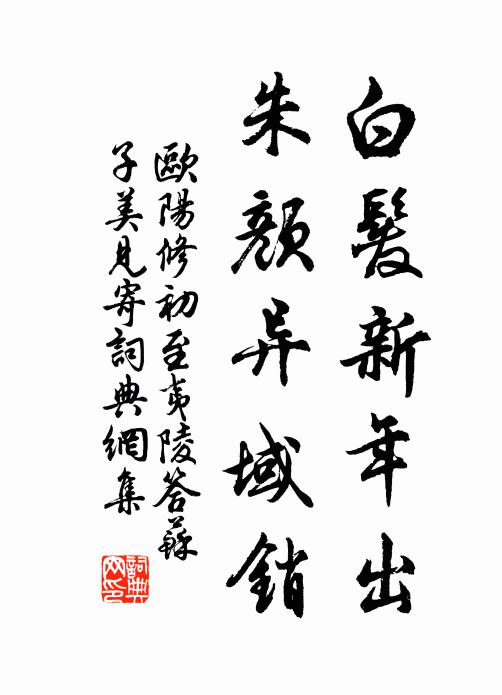 白髮新年出
朱顏异域銷
歐陽修初至夷陵答蘇
子美見寄詞典網集
詞典
网印